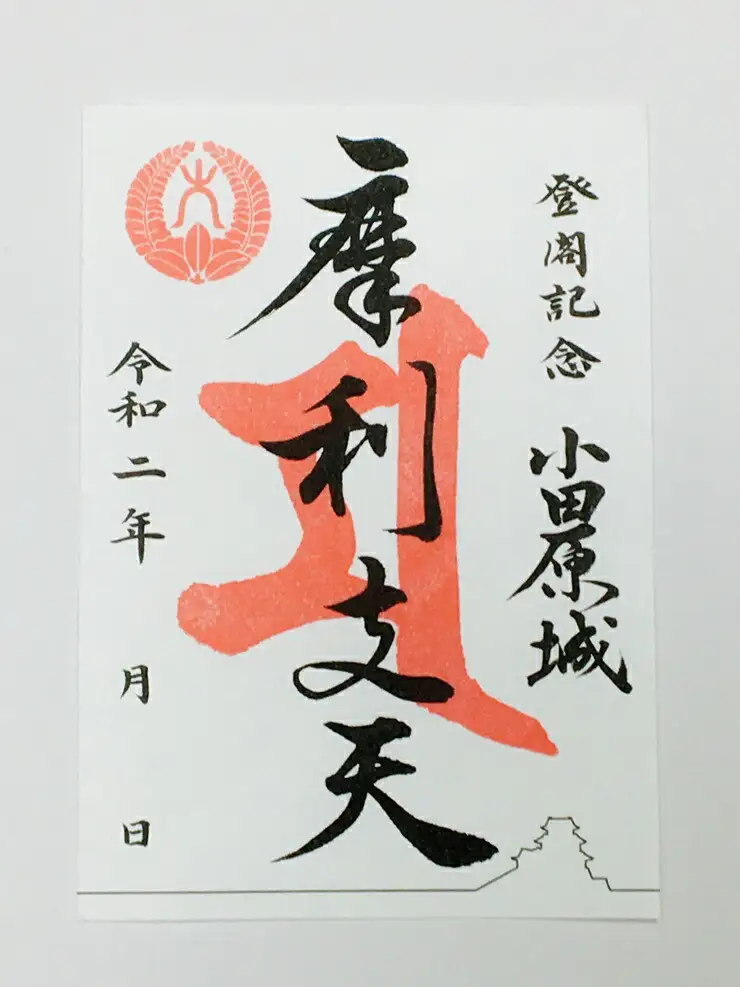 登閣記念 小田原城
摩利支天
令和二年 月 日